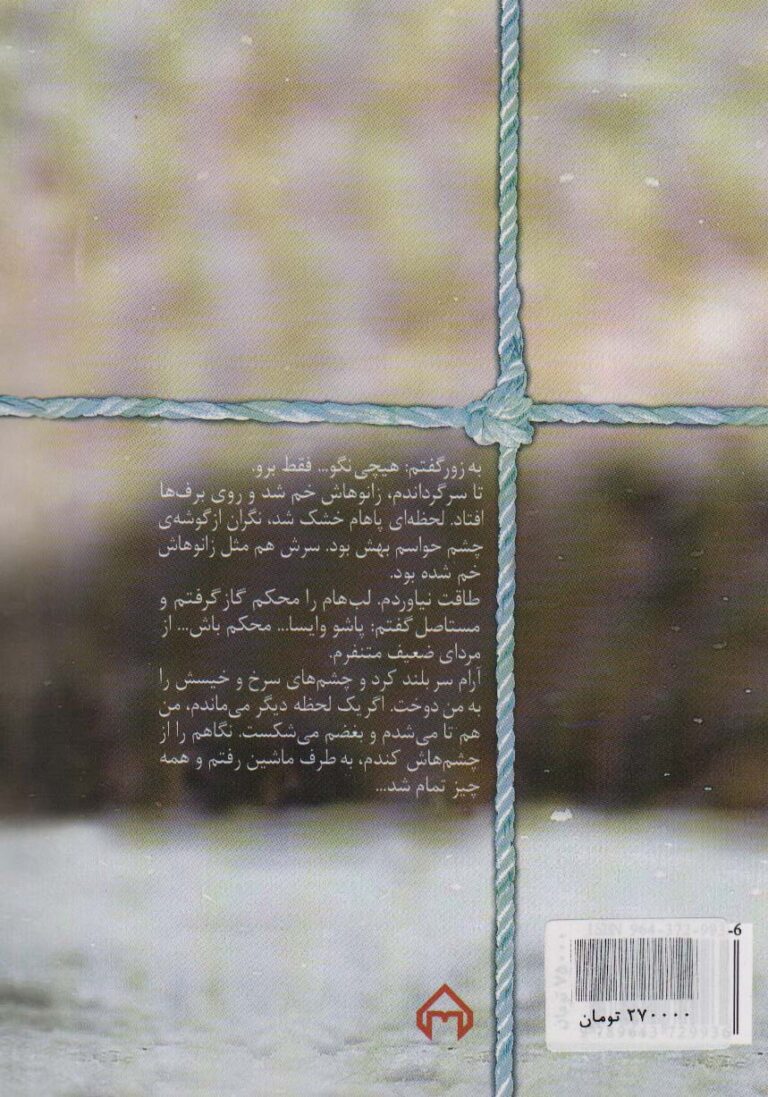 به زور گفتم: هیچی نگو... فقط برو.
تا سرگرداندم، زانوهاش خم شد و روی برف‌ها
افتاد. لحظه‌ای پاهام خشک شد، نگران از گوشه‌ی
چشم حواسم بهش بود. سرش هم مثل زانوهاش
خم شده بود.
طاقت نیاوردم. لب‌هام را محکم گاز گرفتم و
مستاصل گفتم: پاشو وایسا... محکم باش... از
مردای ضعیف متنفرم.
آرام سر بلند کرد و چشم‌های سرخ و خیسش را
به من دوخت. اگر یک لحظه دیگر می‌ماندم، من
هم تا می‌شدم و بغضم می‌شکست. نگاهم را از
چشم‌هاش کندم، به طرف ماشین رفتم و همه
چیز تمام شد...
ISBN 964-372-993-6
۲۷۰۰۰۰ تومان
9789643729936